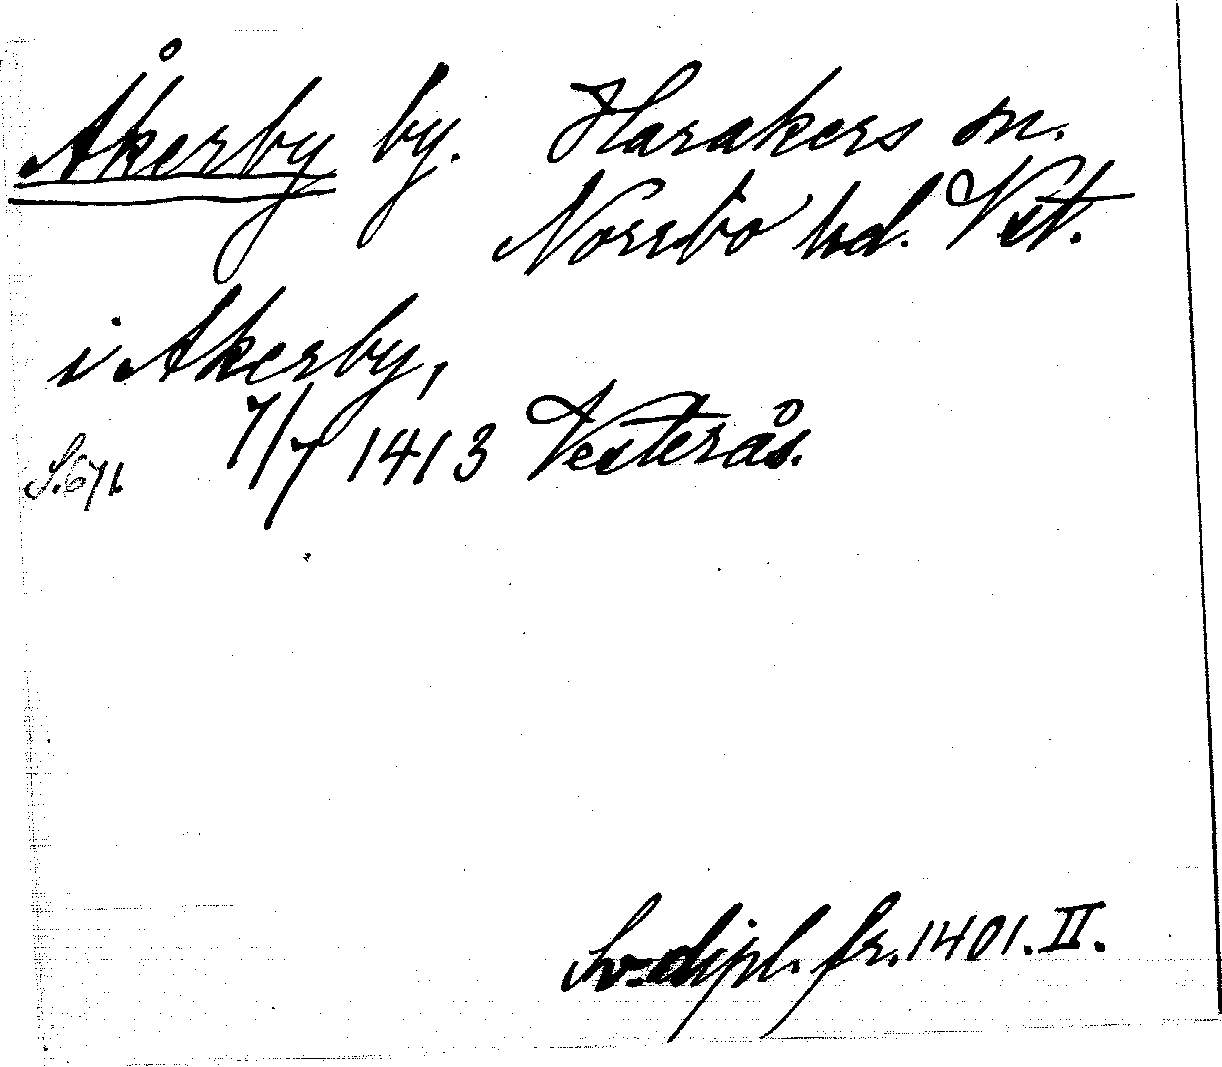 Åkerby by. Harakers sn.
Norrbo hd. Vst.
i Akerby,
7/7 1413 Vesterås.
S. 671.
Sv. dipl. fr. 1401. II.